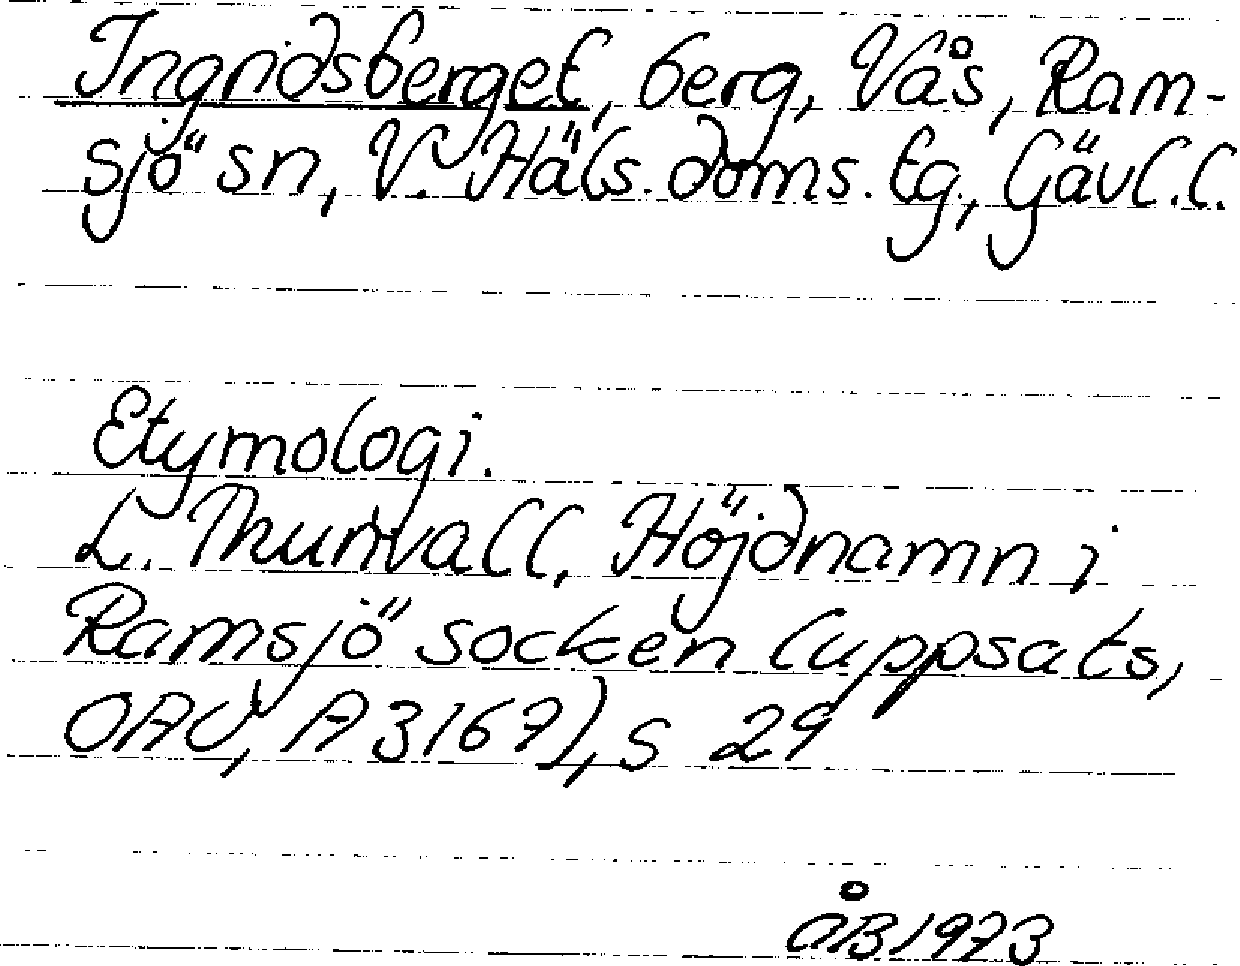 Ingridsberget, berg, Vås, Ram-
sjö sn, V. Häls. doms. tg, Gävl.l.
Etymologi.
L. Thunvall, Höjdnamn i
Ramsjö socken (uppsats,
OAU, A 3167), s 29
ÅB 1973